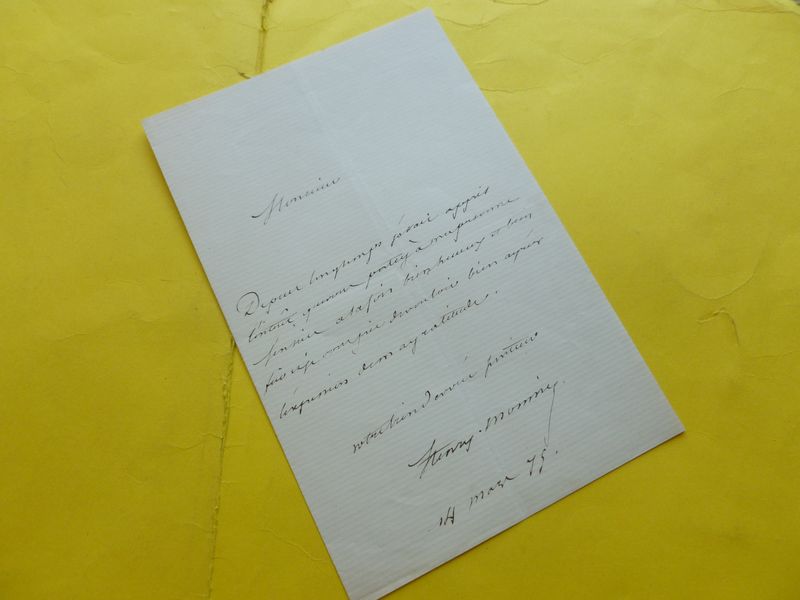 Monsieur
Depuis longtemps j'avais appris
l'intérêt que vous portez à ma personne
a la fois bien heureux et bien
vouloir bien agréer
l'expression de ma gratitude.
votre bien dévoué
Henry-Monnier.
14 mars 75.